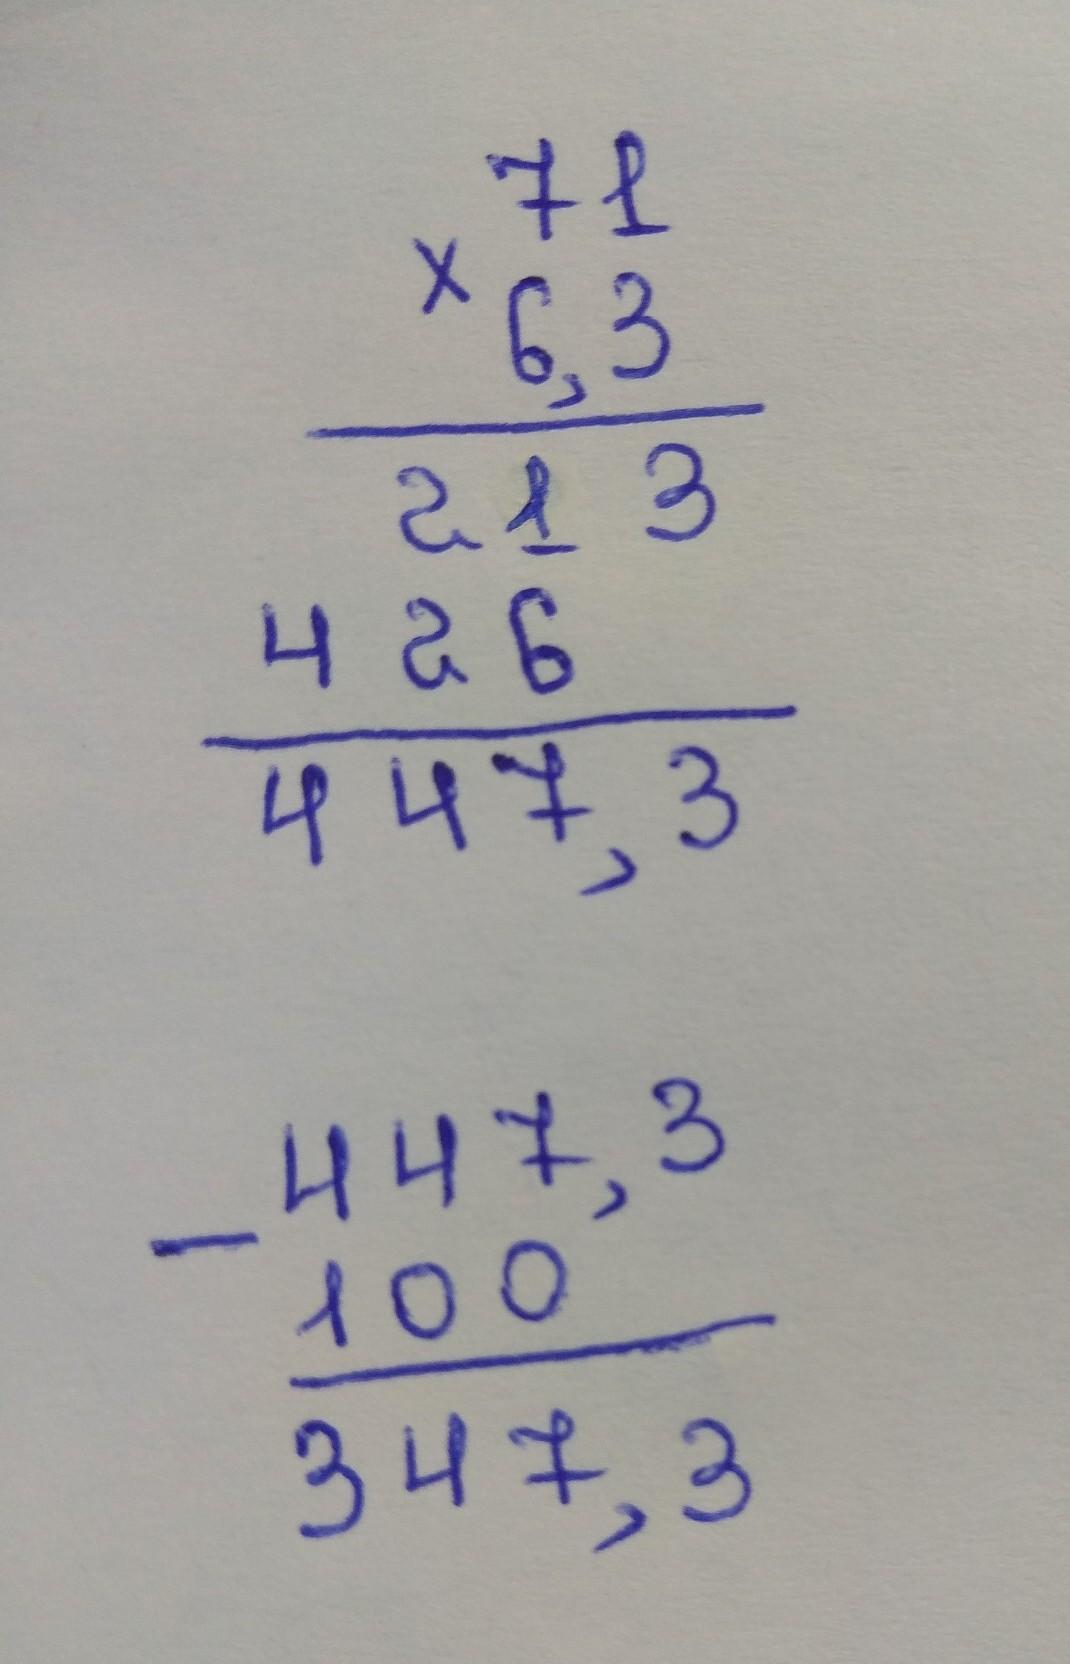 71
×
6,3
213
426
447,3
447,3
−
100
347,3